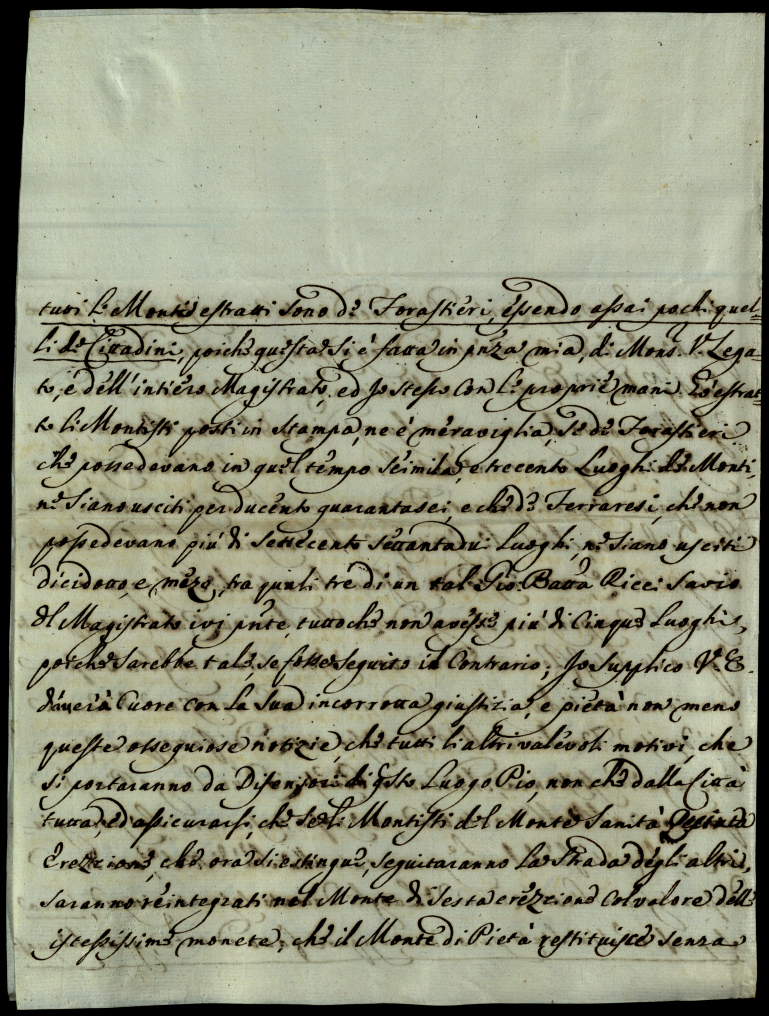 tutti li Monti estratti sono de Forastieri, essendo assai pochi quel-
li de Cittadini, poiche questa si è fatta in pñza mia, di Mons. V. Lega
to, e dell'intiero Magistrato, ed Jo stesso con le proprie mani hò estrat-
to li Montisti posti in stampa, ne è meraviglia, se de Forastieri
che possedevano in quel tempo seimila, e trecento Luoghi de Monti,
ne siano usciti per ducento quarantasei, e che de Ferraresi, che non
possedevano più di settecento settantadui Luoghi, ne siano usciti
dicidotto, e mezo, tra quali trè di un tal Gio: Batta Ricci Savio
del Magistrato ivi pñte, tutto che non avesse più di Cinque Luoghi,
poiche sarebbe tale, se fosse seguito il Contrario; Jo supplico V. E.
d'avere à Cuore con la sua incorrotta giustizia, e pietà non meno
queste ossequiose notizie, che tutti li altri valevoli motivi, che
si portaranno da Difensori di qsto Luogo Pio, non che dalla Città
tutta, ed assicurarsi, che se li Montisti del Monte Sanità Quinta
Erezzione, che ora si estingue, seguitaranno la strada degli altri,
saranno reintegrati nel Monte di sesta erezzione col valore delle
istessissime monete, che il Monte di Pietà restituisce senza